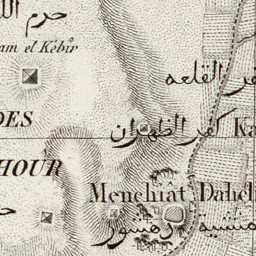 حرم
am el Kébir
كفر القلعه
DES
كفر الظهران Ka
HOUR
Menchiât Dahch
منشية دهشور